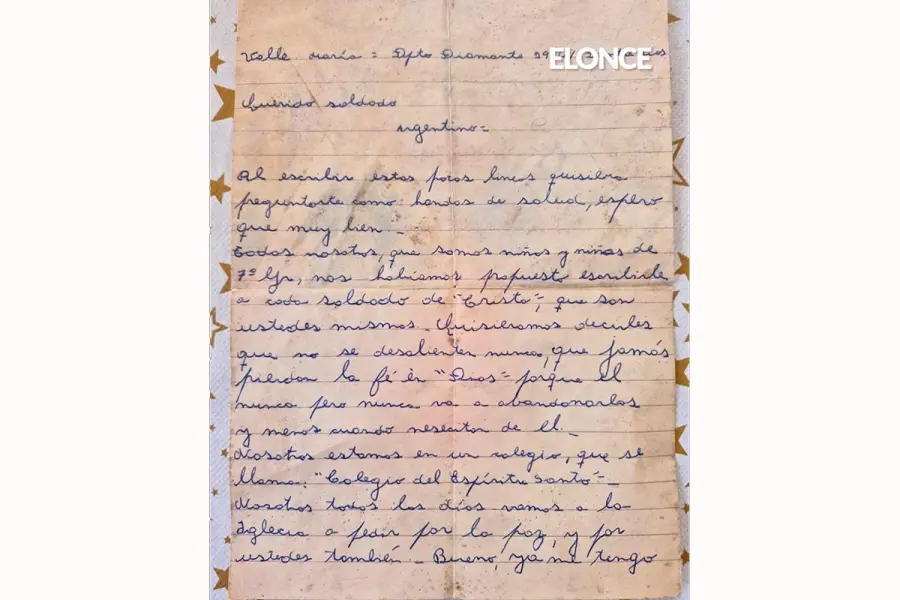 Valle María = Dpto Diamante
ELONCE
Querido soldado
Argentino =
Al escribir estas pocas lineas quisiera
preguntarte como handas de salud, espero
que muy bien _
Todos nosotros, que somos niños y niñas de
7º Gr, nos habiamos popuesto escribirle
a cada soldado de "Cristo", que son
ustedes mismos _ Quisieramos decirles
que no se desalienten nunca, que jamás
pierdan la fé en "Dios" = porque el
nunca pero nunca va a abandonarlos
y menos cuando nesesitan de El. _
Nosotros estamos en un colegio, que se
llama: "Colegio del Espíritu Santo" _
Nosotros todos los días vamos a la
Iglecia a pedir por la paz, y por
ustedes también _ Bueno, ya me tengo